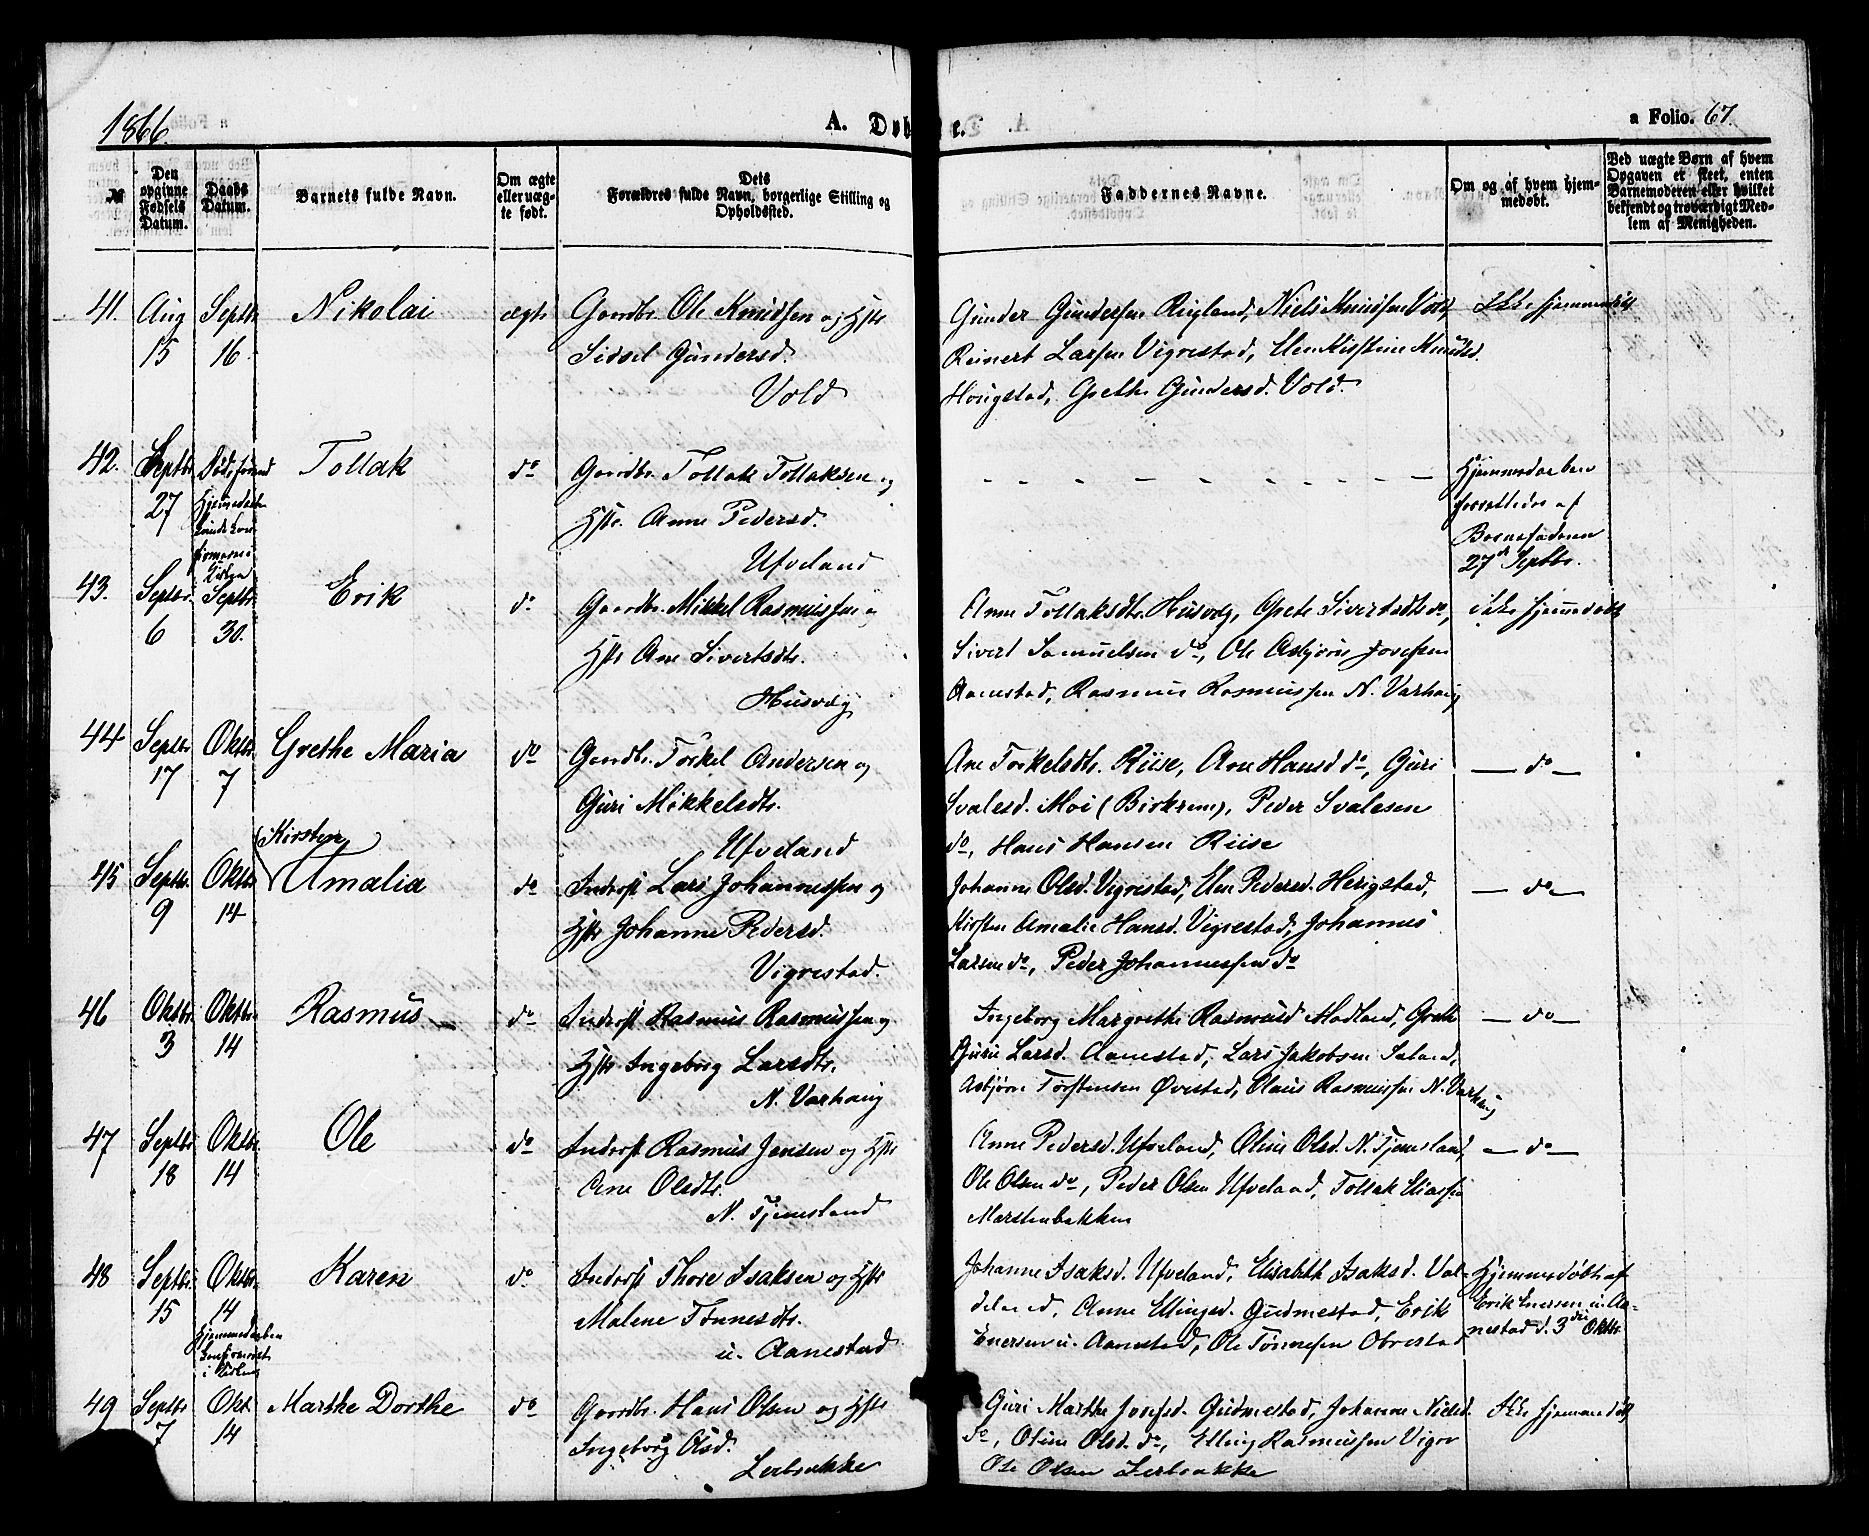 1866. A. Døbte. a Folio. 67.
№ Den opgivne Fødsels Datum. Daabs Datum. Barnets fulde Navn. Om ægte eller uægte født. Dets Forældres fulde Navn, borgerlige Stilling og Opholdssted. Faddernes Navne. Om og af hvem hjemmedøbt. Ved uægte Børn af hvem Opgaven er skeet, enten Barnemoderen eller hvilket bekjendt og troværdigt Medlem af Menigheden.
41. Aug Septbr Nikolai ægte Gaardbr. Ole Knudsen og Hstr Gunder Gundersen Rugland, Niels Knudsen Vold, Ikke hjemmedøbt
15 16. Sidsel Gundersd. Reinert Larsen Vigrestad, Elen Kirstine Knudsd.
Vold Hougstad, Grethe Gundersd. Vold.
42. Septbr. Tollak do Gaardbr. Tollak Tollaksen og - - - - Hjemmedaaben
27 Hstr. Anne Pedersd. forrettedes af
Ufveland Barnefaderen
27de Septbr.
43. Septbr. Septbr. Erik do Gaardbr. Mikkel Rasmussen og Anne Tollaksdtr. Husvæg, Grete Sivertsdtr do, ikke hjemmedøbt
6 30. Hstr Ane Sivertsdtr. Sivert Samuelsen do, Ole Asbjørn Josefsen
Husvæg Aanestad, Rasmus Rasmussen N. Varhaug
44 Septbr Oktbr. Grethe Maria do Gaardbr. Torkel Andersen og Ane Torkelsdtr. Riise, Ane Hansd do, Guri — do —
17 7 Guri Mikkelsdtr. Svalesd. Moi (Birkrem), Peder Svalesen
Ufveland do, Hans Hansen Riise
Kirsten
45 Septbr. Oktbr Amalia do Inderst Lars Johannessen og Johanne Olsd. Vigrestad, Elen Pedersd. Herigstad, — do —
9 14 Hstr Johanne Pedersd. Kirsten Amalie Hansd. Vigrestad, Johannes
Vigrestad. Larsen do, Peder Johannessen do
46 Oktbr. Oktbr. Rasmus do Inderst Rasmus Rasmussen og Ingeborg Margrethe Rasmusd Madland, Grethe — do —
3 14 Hstr Ingeborg Larsdtr. Gurie Larsd. Aanestad, Lars Jakobsen
N. Varhaug Asbjørn Torstensen Øvestad, Claus Rasmussen N. Varhaug
47 Septbr Oktbr Ole do Inderst Rasmus Jensen og Hstr Anne Pedersd. Ufveland, Oline Olsd. N. Tjemsland, — do —
18 14 Ane Olsdtr. Ole Olsen do, Peder Olsen Ufveland, Tollak Eliassen
N. Tjemsland Marstenbakken
48 Septbr Oktbr. Karen do Inderst Thore Isaksen og Hstr Johanne Isaksd. Ufveland, Elisabeth Isaksd. Val- Hjemmedøbt af
15 14 Malene Tønnesdtr. deland, Anne Ellingsd. Gudmestad, Erik Erik Enersen u. Aa-
Hjemmedaaben u. Aanestad Enersen u. Aanestad, Ole Tønnesen Obrestad nestad d. 3die Oktbr.
i Kirken
49 Septbr Okt. Marthe Dorthe do Gaardbr. Hans Olsen og Hstr Guri Marthe Josefsd. Gudmestad, Johanne Nielsd. Ikke hjemmedøbt
7 14 Ingeborg Olsd. do, Oline Olsd. do, Elling Rasmussen
Lerbrække Ole Olsen Lerbrække